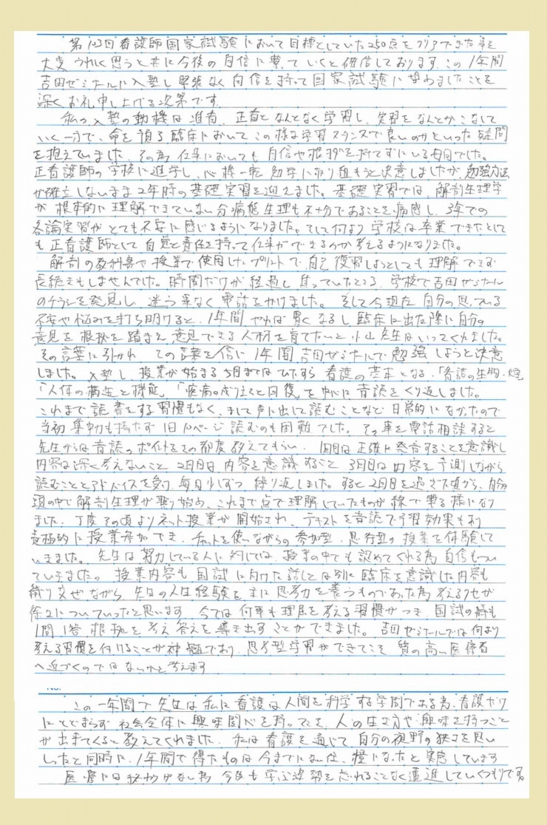 第102回看護師国家試験において目標としていた250点をクリアできた事を
大変うれしく思うと共に今後の自信に繋っていくと確信しております この1年間
吉田ゼミナールに入塾し 自信を持って国家試験に望めましたことを
深くお礼申し上げる次第です。
私の入塾の動機は准看、正看となんとなく学習し、実習をなんとかこなして
いく一方で、命を預る臨床においてこの様な学習スタンスで良いのかといった疑問
を抱えていました。その為仕事においても自信や根拠を持てずにいる毎日でした。
正看護師の学校に進学し、心機一転勉学に取り組もうと決意しましたが、勉強方法
が確立しないまま2年時の基礎実習を迎えました。基礎実習では、解剖生理学
が根本的に理解できていない分病態生理も不十分であることを痛感し、3年での
各論実習がとても不安に感じるようになりました。そして何より学校は卒業できたとして
も正看護師として自覚と責任を持って仕事ができるのか考えるようになりました。
解剖の教科書や授業で使用したプリントで自己復習しようとしても理解できず
長続きもしませんでした。時間だけが経過し焦っていたところ、学校で吉田ゼミナール
のチラシを発見し、迷う事なく電話をかけました。そして今現在自分の思っている
不安や悩みを打ち明けると、1年間やれば賢くなるし臨床に出た際に自分の
意見を根拠を踏まえ意見できる人材を育てたいと小山先生はいってくれました。
その言葉に引かれ その言葉を信じ1年間吉田ゼミナールで勉強しようと決意
しました。入塾し、授業が始まる5月まではひたすら看護の基本となる、「看護の生物・
「人体の構造と機能」「疾病の成り立ちと回復」を中心に音読をくり返しました。
これまで読書をする習慣もなく、まして声に出して読むことなど日常的になかったので
当初集中力も持たず1日10ページ読むのも困難でした。その事を電話相談すると
先生からは音読のポイントをその都度教えてもらい、1回目は正確に発音することを意識し
内容は深く考えないこと、2回目は内容を意識すること、3回目は内容を予測しながら
読むこととアドバイスを受け毎日少しずつ繰り返しました。すると2回目を過ぎた頃から、自分の
頭の中で解剖生理が繋り始め、これまで点で理解していたものが線で繋る様になり
ました。丁度その頃よりネット授業が開始され、テキストを音読で予習効果もあり
積極的に授業参加ができ、チャットを使いながらの参加型、思考型の授業を体験して
いきました。先生は努力している人に対しては、授業の中でも認めてくれる為自信もつい
ていきました。授業内容も国試に向けた話しとは別に臨床を意識した内容も
織り交ぜながら先生の人生経験をもとに思考力を養うものであった為考える力が
徐々についていったと思います。今では何事も理由を考える習慣がつき国試の時も
1問1答根拠を考え答えを導き出すことができました。吉田ゼミナールでは何より
考える習慣を付けることが神髄であり、思考型学習ができてこそ質の高い医療者
へ近づくのではないかと考えます
この一年間で先生は私に看護は人間を科学する学問である為、看護だけ
にとどまらず社会全体に興味関心を持つことで、人の生き方や興味を持つこと
が出来てくると教えてくれました。私は看護を通じて自分の視野の狭さを思い
しったと同時に、1年間で得たものは今までにない位、糧になったと実感しています
医療には終わりがない為 今後も学ぶ姿勢を忘れることなく邁進していくつもりです